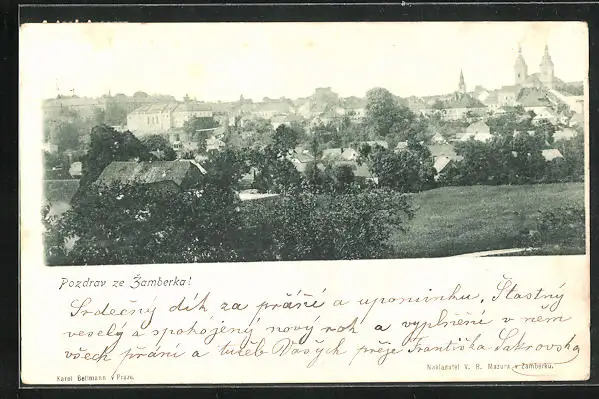 Pozdrav ze Žamberka!
Srdečný dík za přání a upomínku. Šťastný
veselý a spokojený nový rok a vyplnění v něm
všech přání a tužeb Vašich přeje Františka Sakrovská
Karel Bellmann v Praze.
Nakladatel V. R. Mazura v Žamberku.